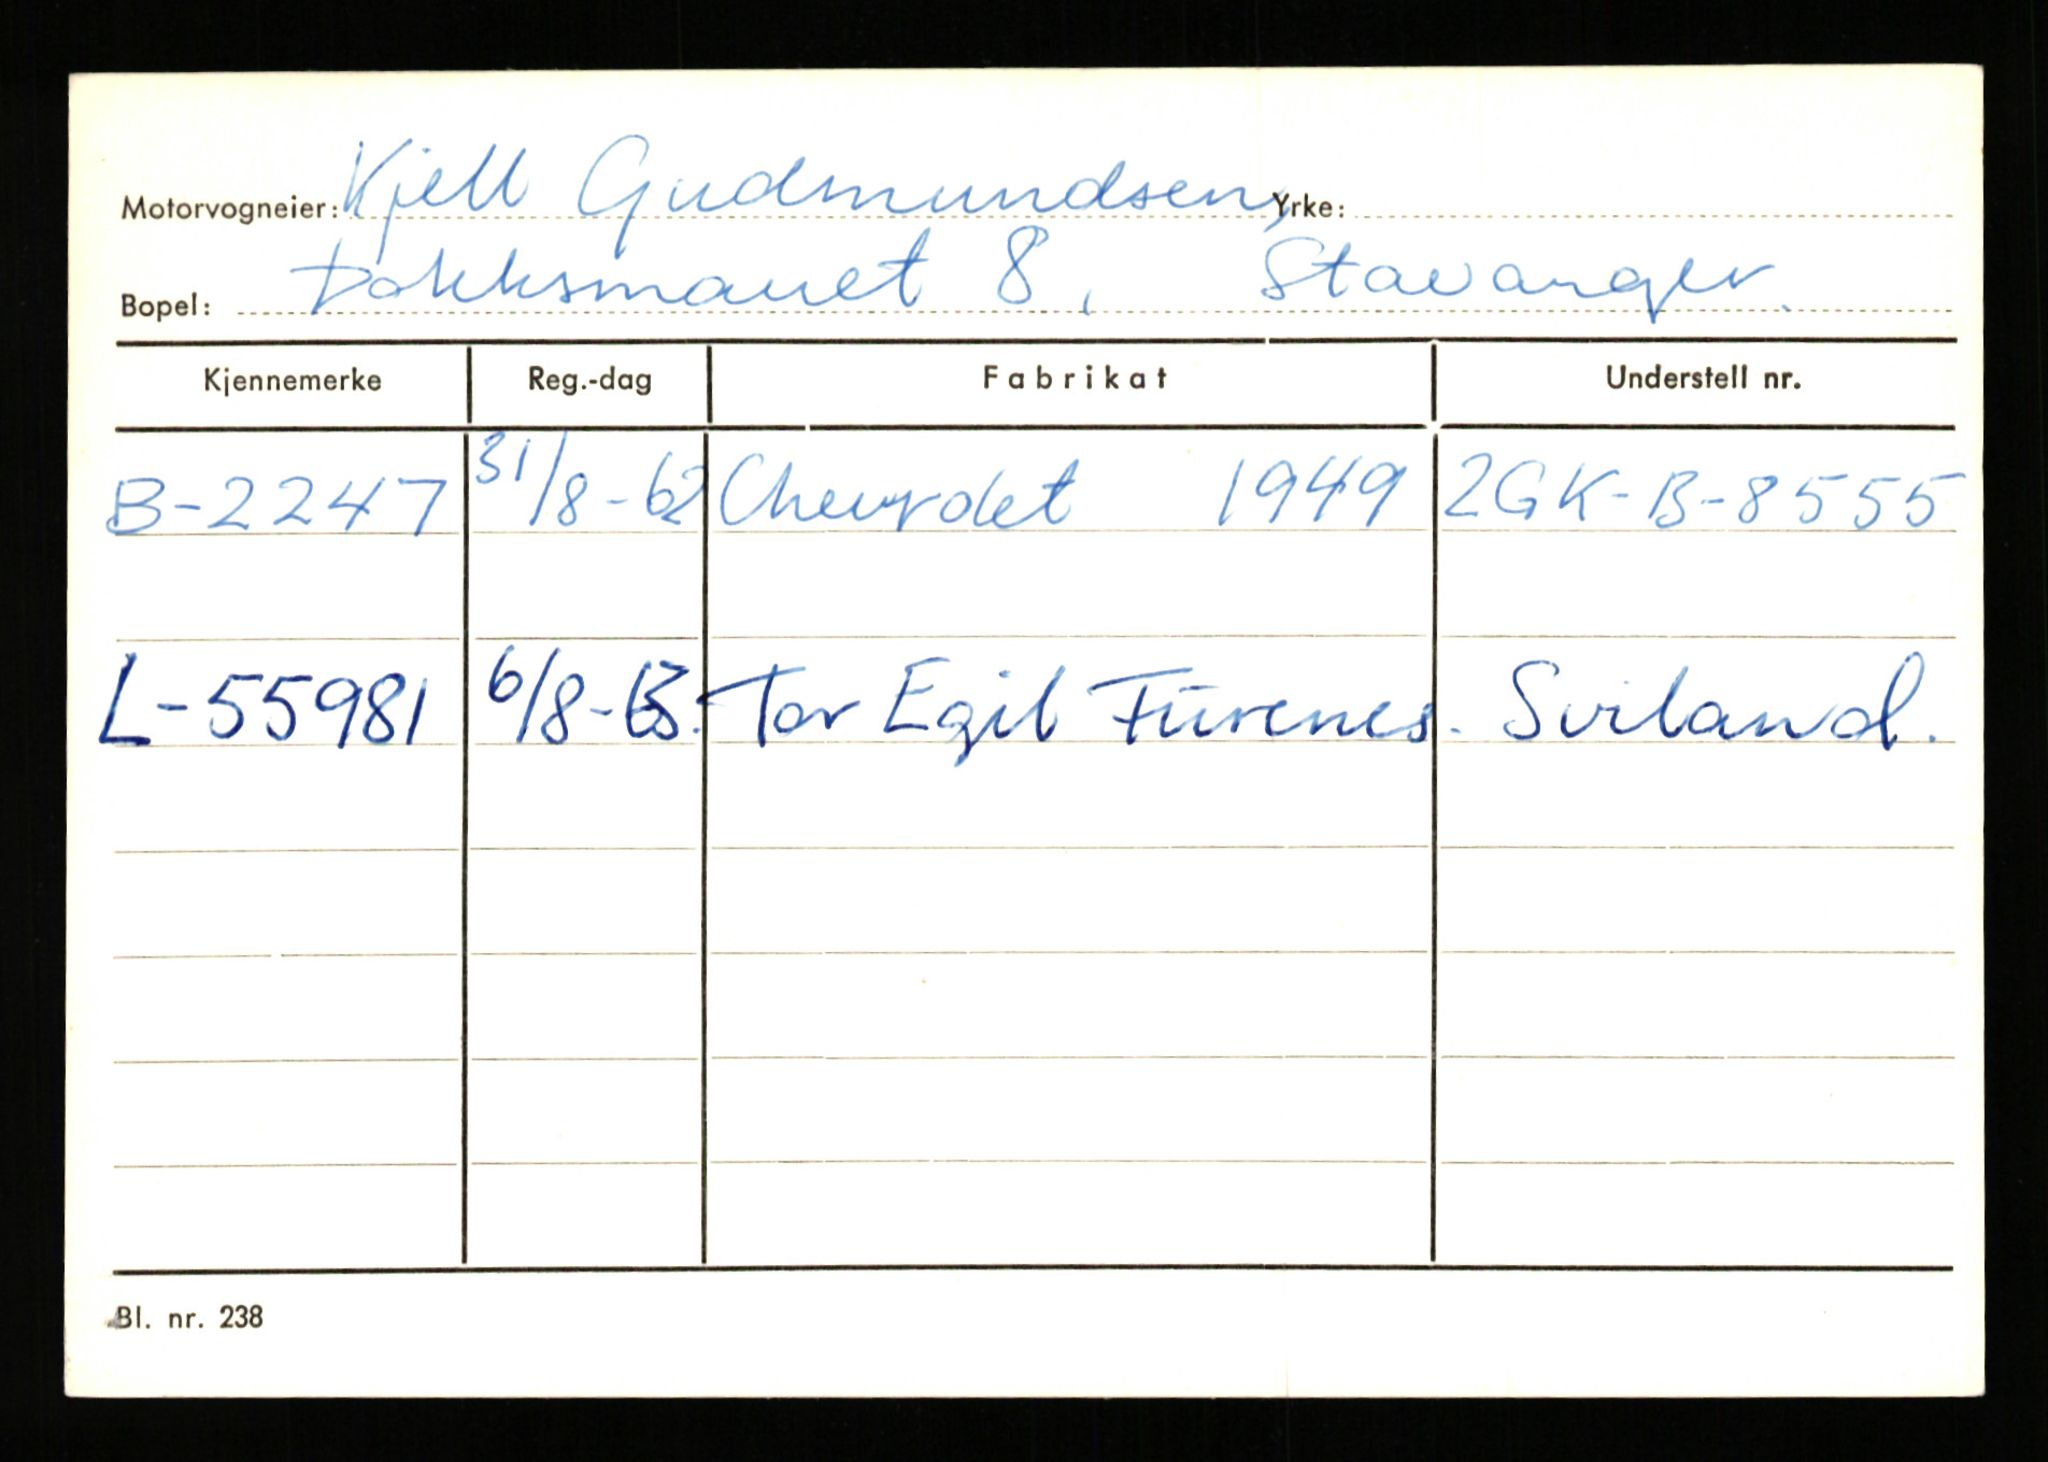 Motorvogneier: Kjell Gudmundsen, Yrke:
Bopel: Dokksmauet 8, Stavanger.
Kjennemerke Reg.-dag Fabrikat Understell nr.
B-2247 31/8-62 Chevrolet 1949 2GK-B-8555
L-55981 6/8-63. Tor Egil Furenes. Sviland.
Bl. nr. 238